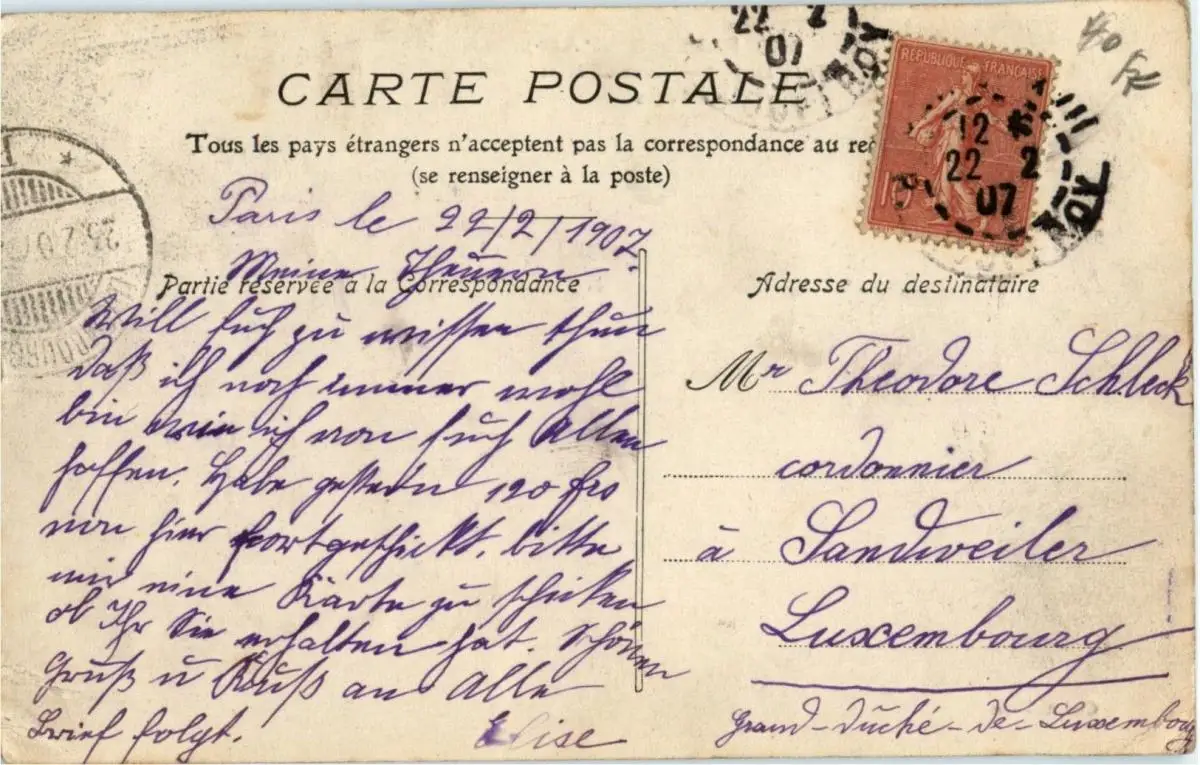 CARTE POSTALE
Tous les pays étrangers n'acceptent pas la correspondance au
(se renseigner à la poste)
Partie réservée à la Correspondance
Paris le 22/2/1907.
Meine Theuern
Will Euch zu wissen thun
daß ich noch immer wohl
bin wie ich von Euch Allen
hoffen. Habe gestern 120 frs
von hier fortgeschickt, bitte
mir eine Karte zu schicken
ob Ihr Sie erhalten hat. Schönen
Gruß u Kuß an Alle
Brief folgt.
Elise
Adresse du destinataire
Mr Theodore Schleck
cordonnier
à Sandweiler
Luxembourg
Grand-duché-de-Luxembourg
REPUBLIQUE FRANÇAISE
12
22 2
07
22 2
07
40 Fr